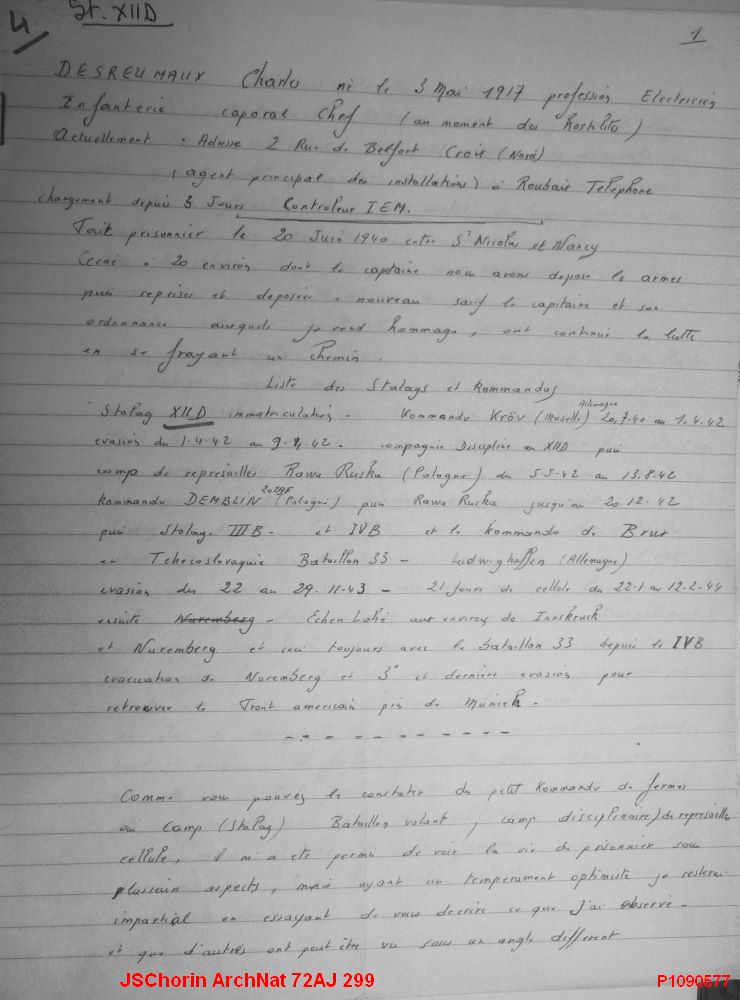 4/ St. XIID
1
DESREUMAUX Charles né le 3 Mai 1917 profession Electricien
Infanterie caporal chef (au moment des Hostilités)
Actuellement : Adresse 2 Rue de Belfort Croix (Nord)
(agent principal des installations) à Roubaix Telephone
changement depuis 3 Jours Controleur IEM.
Fait prisonnier le 20 Juin 1940 entre St Nicolas et Nancy
Cerné à 20 environ dont le capitaine nous avons déposé les armes
puis reprises et déposées à nouveau sauf le capitaine et son
ordonnance auxquels je rend hommage, ont continué la lutte
en se frayant un chemin.
Liste des Stalags et Kommandos
Stalag XIID immatriculation - Kommando Kröv (Moselle) Allemagne 20.7.40 au 1.4.42
evasion du 1.4.42 au 9.4.42. compagnie Discipline au XIID puis
camp de represailles Rawa Ruska (Pologne) du 5.5.42 au 13.8.42
Kommando DEMBLIN (Pologne) puis Rawa Ruska jusqu'au 20.12.42
puis Stalag IIIB - et IVB et le Kommando de Brux
en Tchecoslovaquie Bataillon 33 - Ludwighaffen (Allemagne)
evasion du 22 au 29.11.43 - 21 Jours de cellule du 22.1 au 12.2.44
ensuite Nuremberg - aux environs de Innsbruck
et Nuremberg et ceci toujours avec le bataillon 33 depuis le IVB
evacuation de Nuremberg et 3e et dernière evasion pour
retrouver le Front americain près de Munich.
Comme vous pouvez le constater du petit Kommando de fermes
au Camp (Stalag) Bataillon volant, camp disciplinaire) de represailles
cellule, il m'a été permis de voir la vie du prisonnier sous
plusieurs aspects, mais ayant un temperament optimiste je resterai
impartial en essayant de vous decrire ce que j'ai observé -
et que d'autres ont peut être vu sous un angle different
JSChorin ArchNat 72AJ 299
P1090577